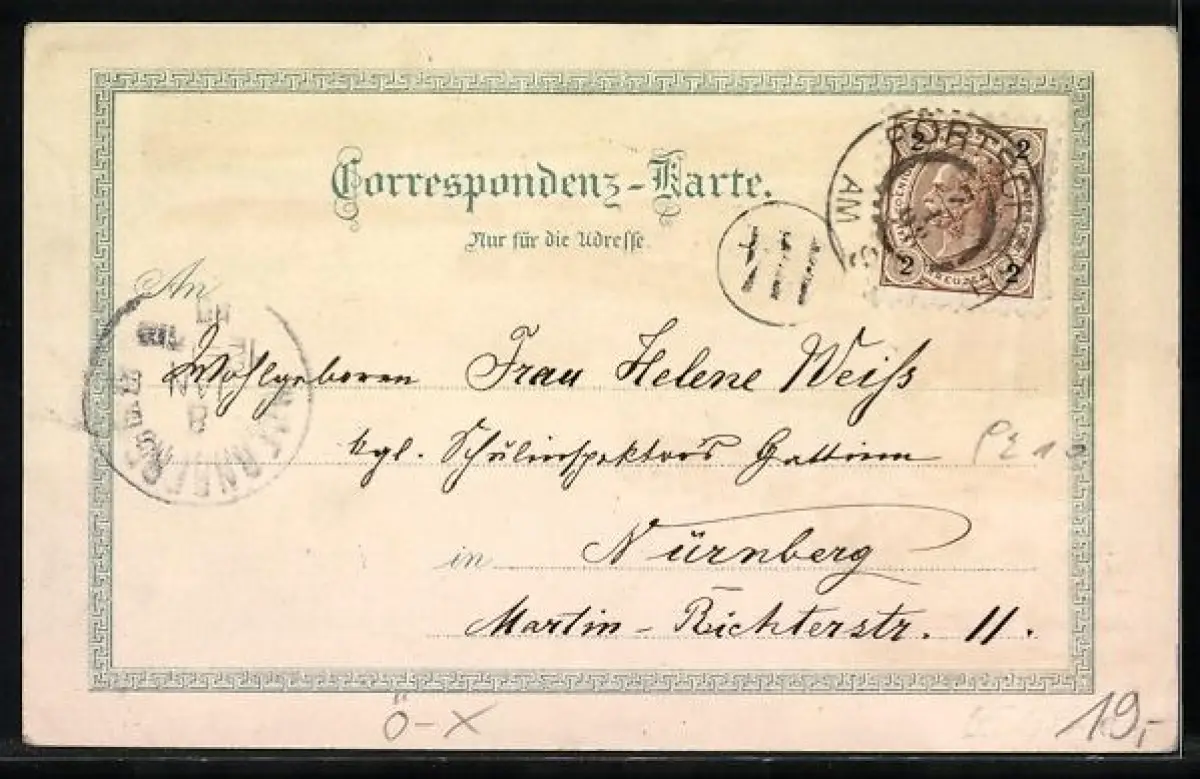 Correspondenz-Karte.
Nur für die Adresse.
2 2
KREUZER
2 2
AM
An
Wohlgeboren Frau Helene Weiss
kgl. Schulinspektors Gattinn
in Nürnberg
Martin-Richterstr. 11.
NUERNBERG
Ö-X
19,-